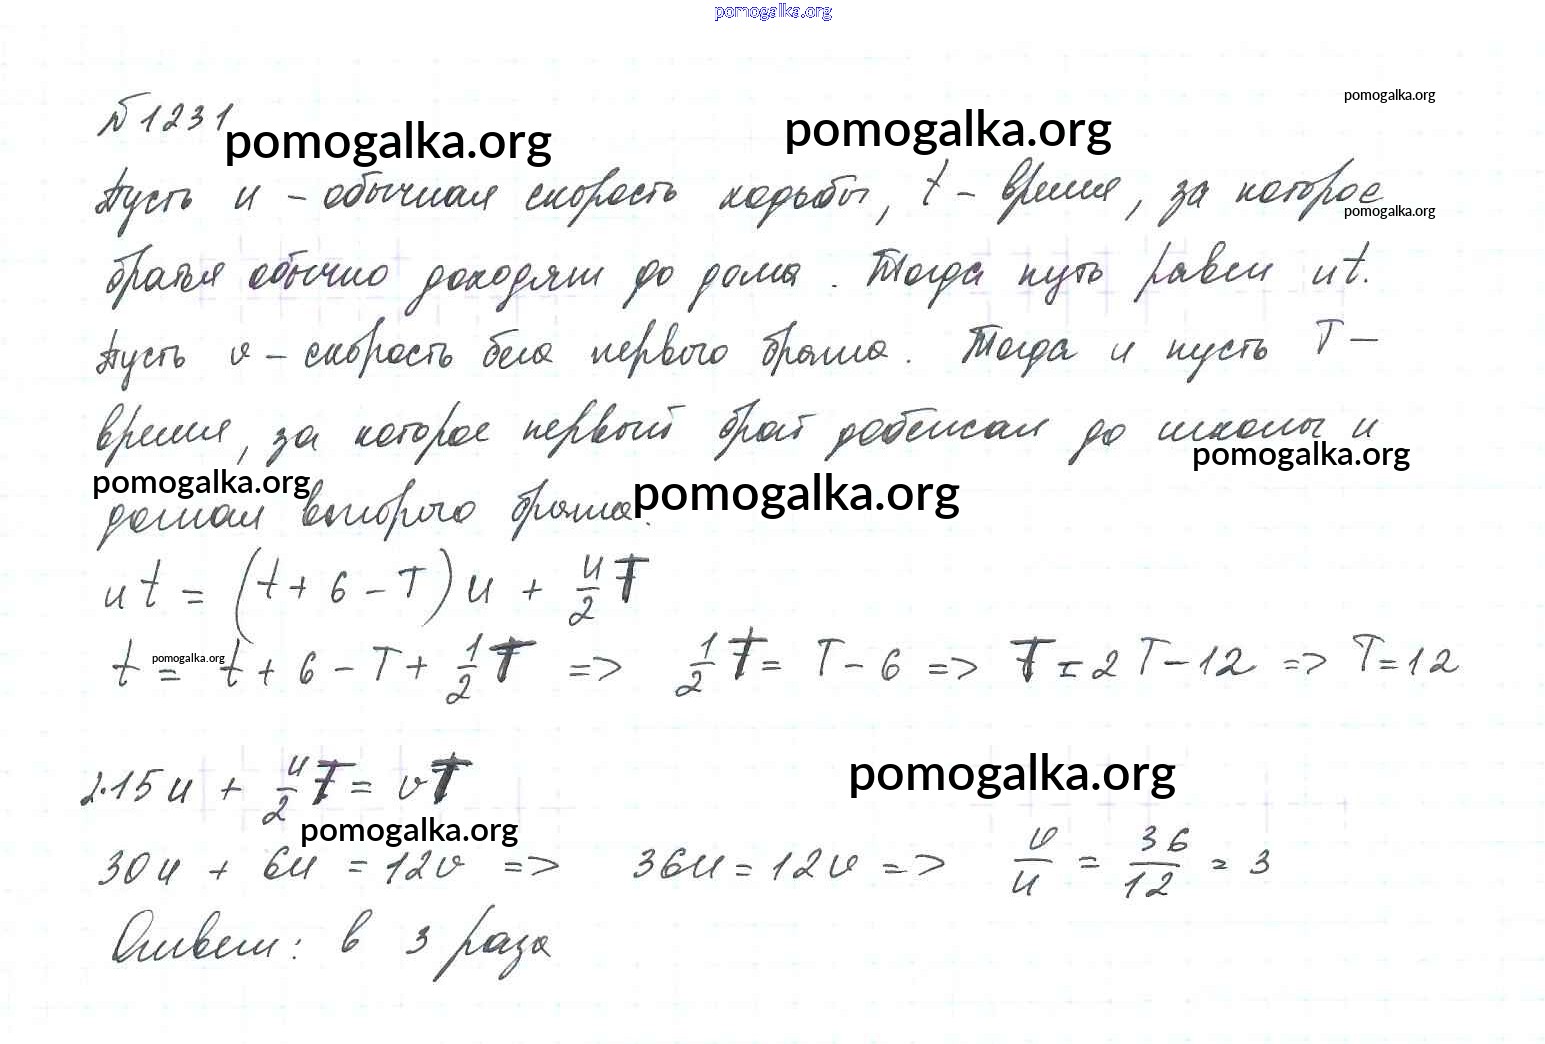 pomogalka.org
pomogalka.org
№1231
pomogalka.org
pomogalka.org
Пусть u – обычная скорость ходьбы, t – время, за которое
pomogalka.org
братья обычно доходят до дома. Тогда путь равен ut.
Пусть v – скорость бега первого брата. Тогда и пусть T –
время, за которое первый брат добежал до школы и
pomogalka.org
pomogalka.org
pomogalka.org
догнал второго брата.
ut = (t + 6 – T) u + u/2 T
t = t + 6 – T + 1/2 T => 1/2 T = T – 6 => T = 2T – 12 => T = 12
pomogalka.org
2·15u + u/2 T = vT
pomogalka.org
pomogalka.org
30u + 6u = 12v => 36u = 12v => v/u = 36/12 = 3
Ответ: в 3 раза